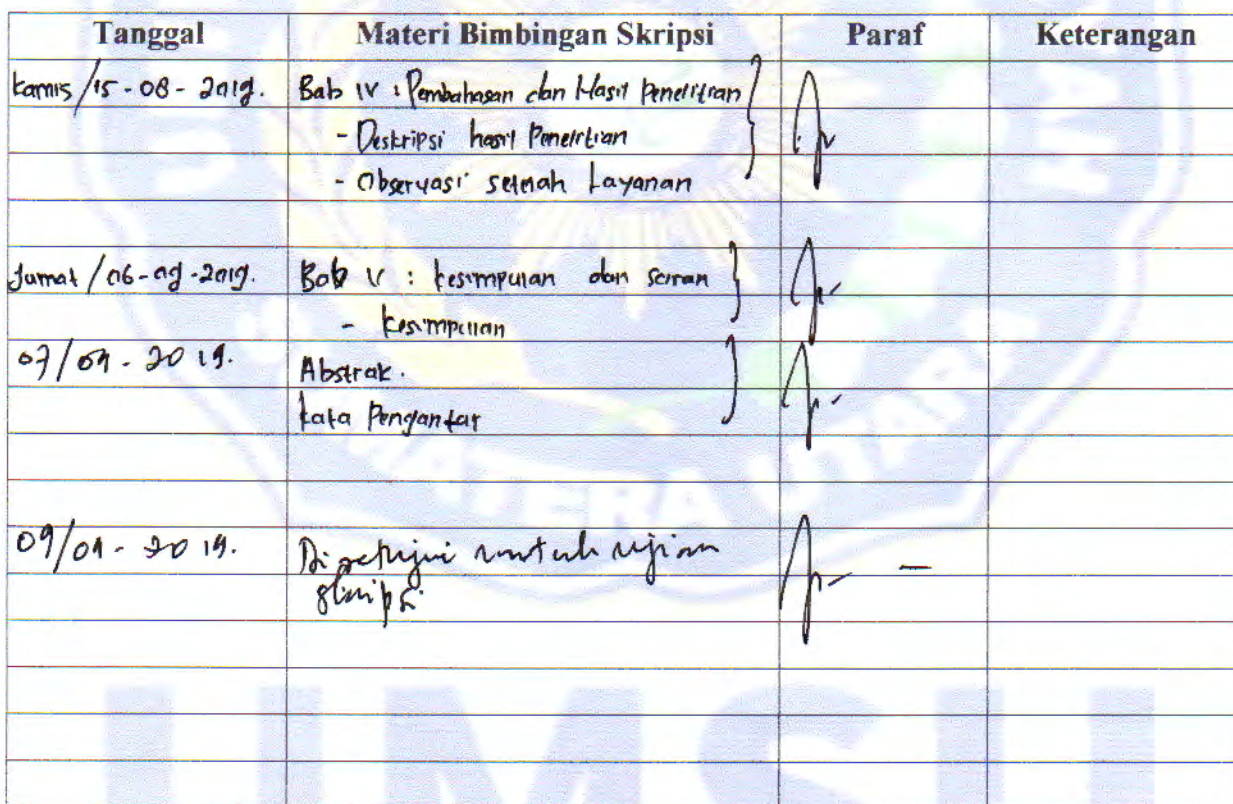 Tanggal Materi Bimbingan Skripsi Paraf Keterangan
Kamis/15-08-2019. Bab IV : Pembahasan dan Hasil Penelitian
- Deskripsi hasil Penelitian
- Observasi setelah Layanan
Jumat/06-09-2019. Bab V : Kesimpulan dan saran
- Kesimpulan
07/09-2019. Abstrak.
Kata Pengantar
09/09-2019. Disetujui untuk ujian
skripsi
MATERA UTARA
UMSU